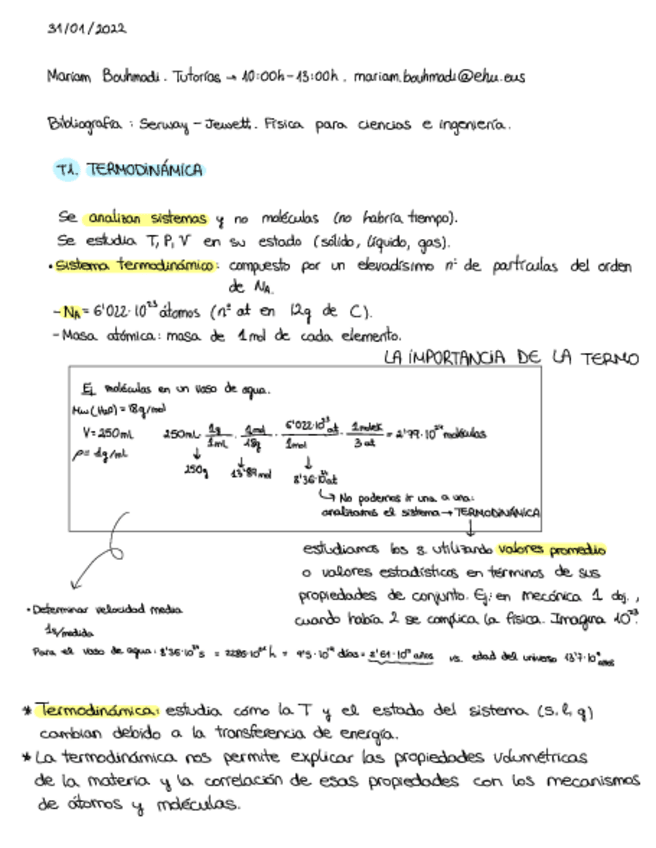 31/01/2022
Mariam Bouhmadi. Tutorías → 10:00h-13:00h. mariam.bouhmadi@ehu.eus
Bibliografía: Serway-Jewett. Física para ciencias e ingeniería.
T1. TERMODINÁMICA
Se analizan sistemas y no moléculas (no habría tiempo).
Se estudia T, P, V en su estado (sólido, líquido, gas).
• Sistema termodinámico: compuesto por un elevadísimo nº de partículas del orden
de NA.
- NA = 6'022·10²³ átomos (nº at en 12g de C).
- Masa atómica: masa de 1mol de cada elemento.
LA IMPORTANCIA DE LA TERMO
Ej. moléculas en un vaso de agua.
Mw(H₂O) = 18g/mol
V = 250mL 250mL · 1g/1mL · 1mol/18g · 6'022·10²³ at/1mol · 1molek/3 at = 2'79·10²⁴ moléculas
ρ = 1g/mL ↓ ↓ ↓
250g 13'89mol 8'36·10²⁴ at
↳ No podemos ir una a una:
analizamos el sistema → TERMODINÁMICA
estudiamos los s. utilizando valores promedio
o valores estadísticos en términos de sus
propiedades de conjunto. Ej: en mecánica 1 obj.,
cuando había 2 se complica la física. Imagina 10²³!
• Determinar velocidad media
1s/medida
Para el vaso de agua: 8'36·10²⁴ s = = = años vs. edad del universo 13'7·10⁹ años
* Termodinámica: estudia cómo la T y el estado del sistema (s, l, g)
cambian debido a la transferencia de energía.
* La termodinámica nos permite explicar las propiedades volumétricas
de la materia y la correlación de esas propiedades con los mecanismos
de átomos y moléculas.